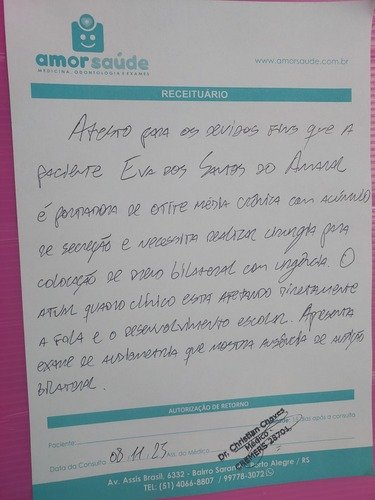 amorsaúde
MEDICINA, ODONTOLOGIA E EXAMES
www.amorsaude.com.br
RECEITUÁRIO
Atesto para os devidos fins que a
paciente Eva dos Santos do Amaral
é portadora de otite média crônica com acúmulo
de secreção e necessita realizar cirurgia para
colocação de dreno bilateral com urgência. O
atual quadro clínico esta afetando diretamente
a fala e o desenvolvimento escolar. Apresenta
exame de audiometria que mostra ausência de audição
bilateral.
AUTORIZAÇÃO DE RETORNO
Paciente: dias após a consulta
Data da Consulta 08.11.23 Ass. do Médico
Dr. Christian Chaves
Médico
CREMERS
Av. Assis Brasil, 6332 - Bairro Sarandi Porto Alegre / RS
TEL: (51) 4066-8807 / 99778-3072